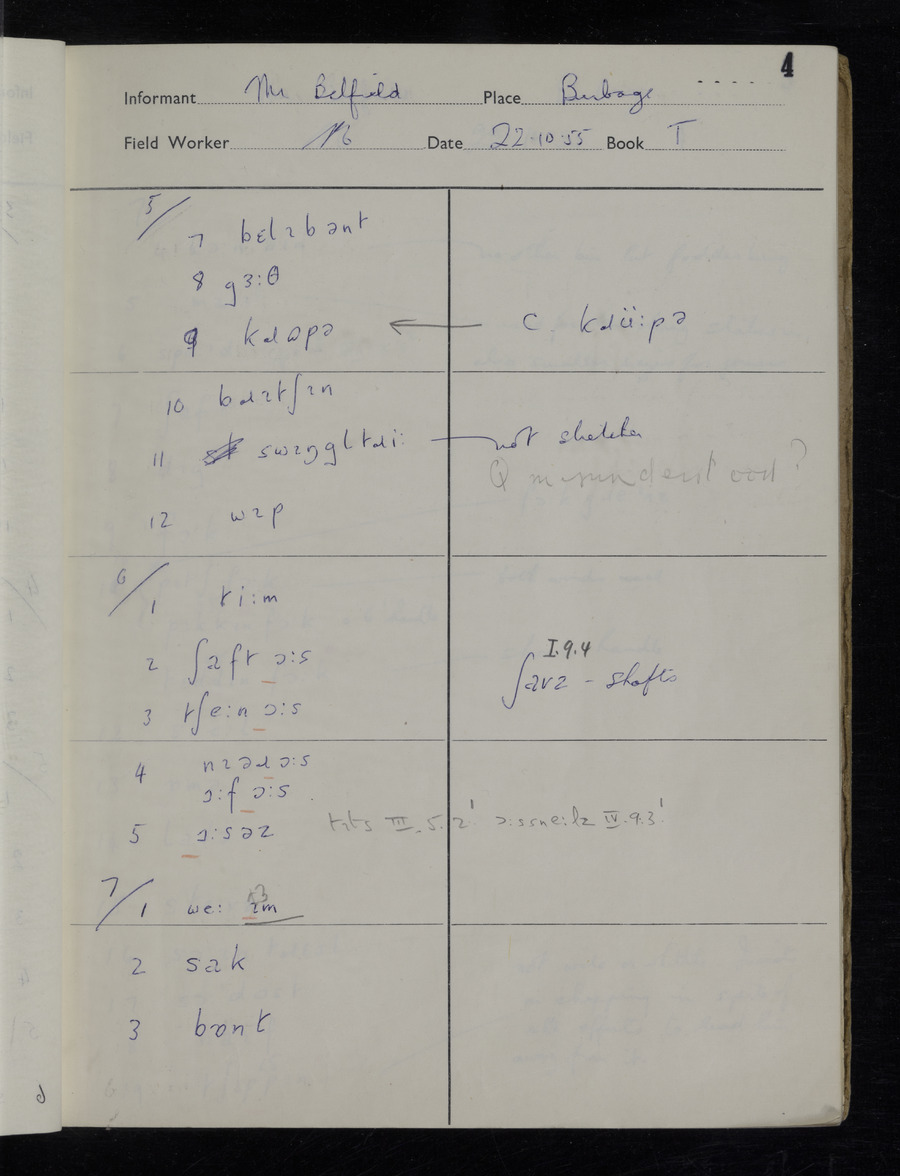 4
Informant Mr Belfield Place Burbage
Field Worker Date 22·10·55 Book I
5/
7 bɛlɪbənt
8 gɜ:θ
9 kɹɷpə ← c. kɹü:pə
10 bɹɪtʃɪn
11 swɪŋgltɹi: — not
Q misunderstood?
12 wɪp
6/
1 ti:m
2 ʃaft ɔ:s
I.9.4
ʃavz - shafts
3 tʃe:n ɔ:s
4 nɪəɹ ɔ:s
ɔ:f ɔ:s
5 ɔ:səz
tɪts III.5.2' ɔ:ssne:lz IV.9.3'
7/
1 we: ɪm
2 sak
3 bɷnt